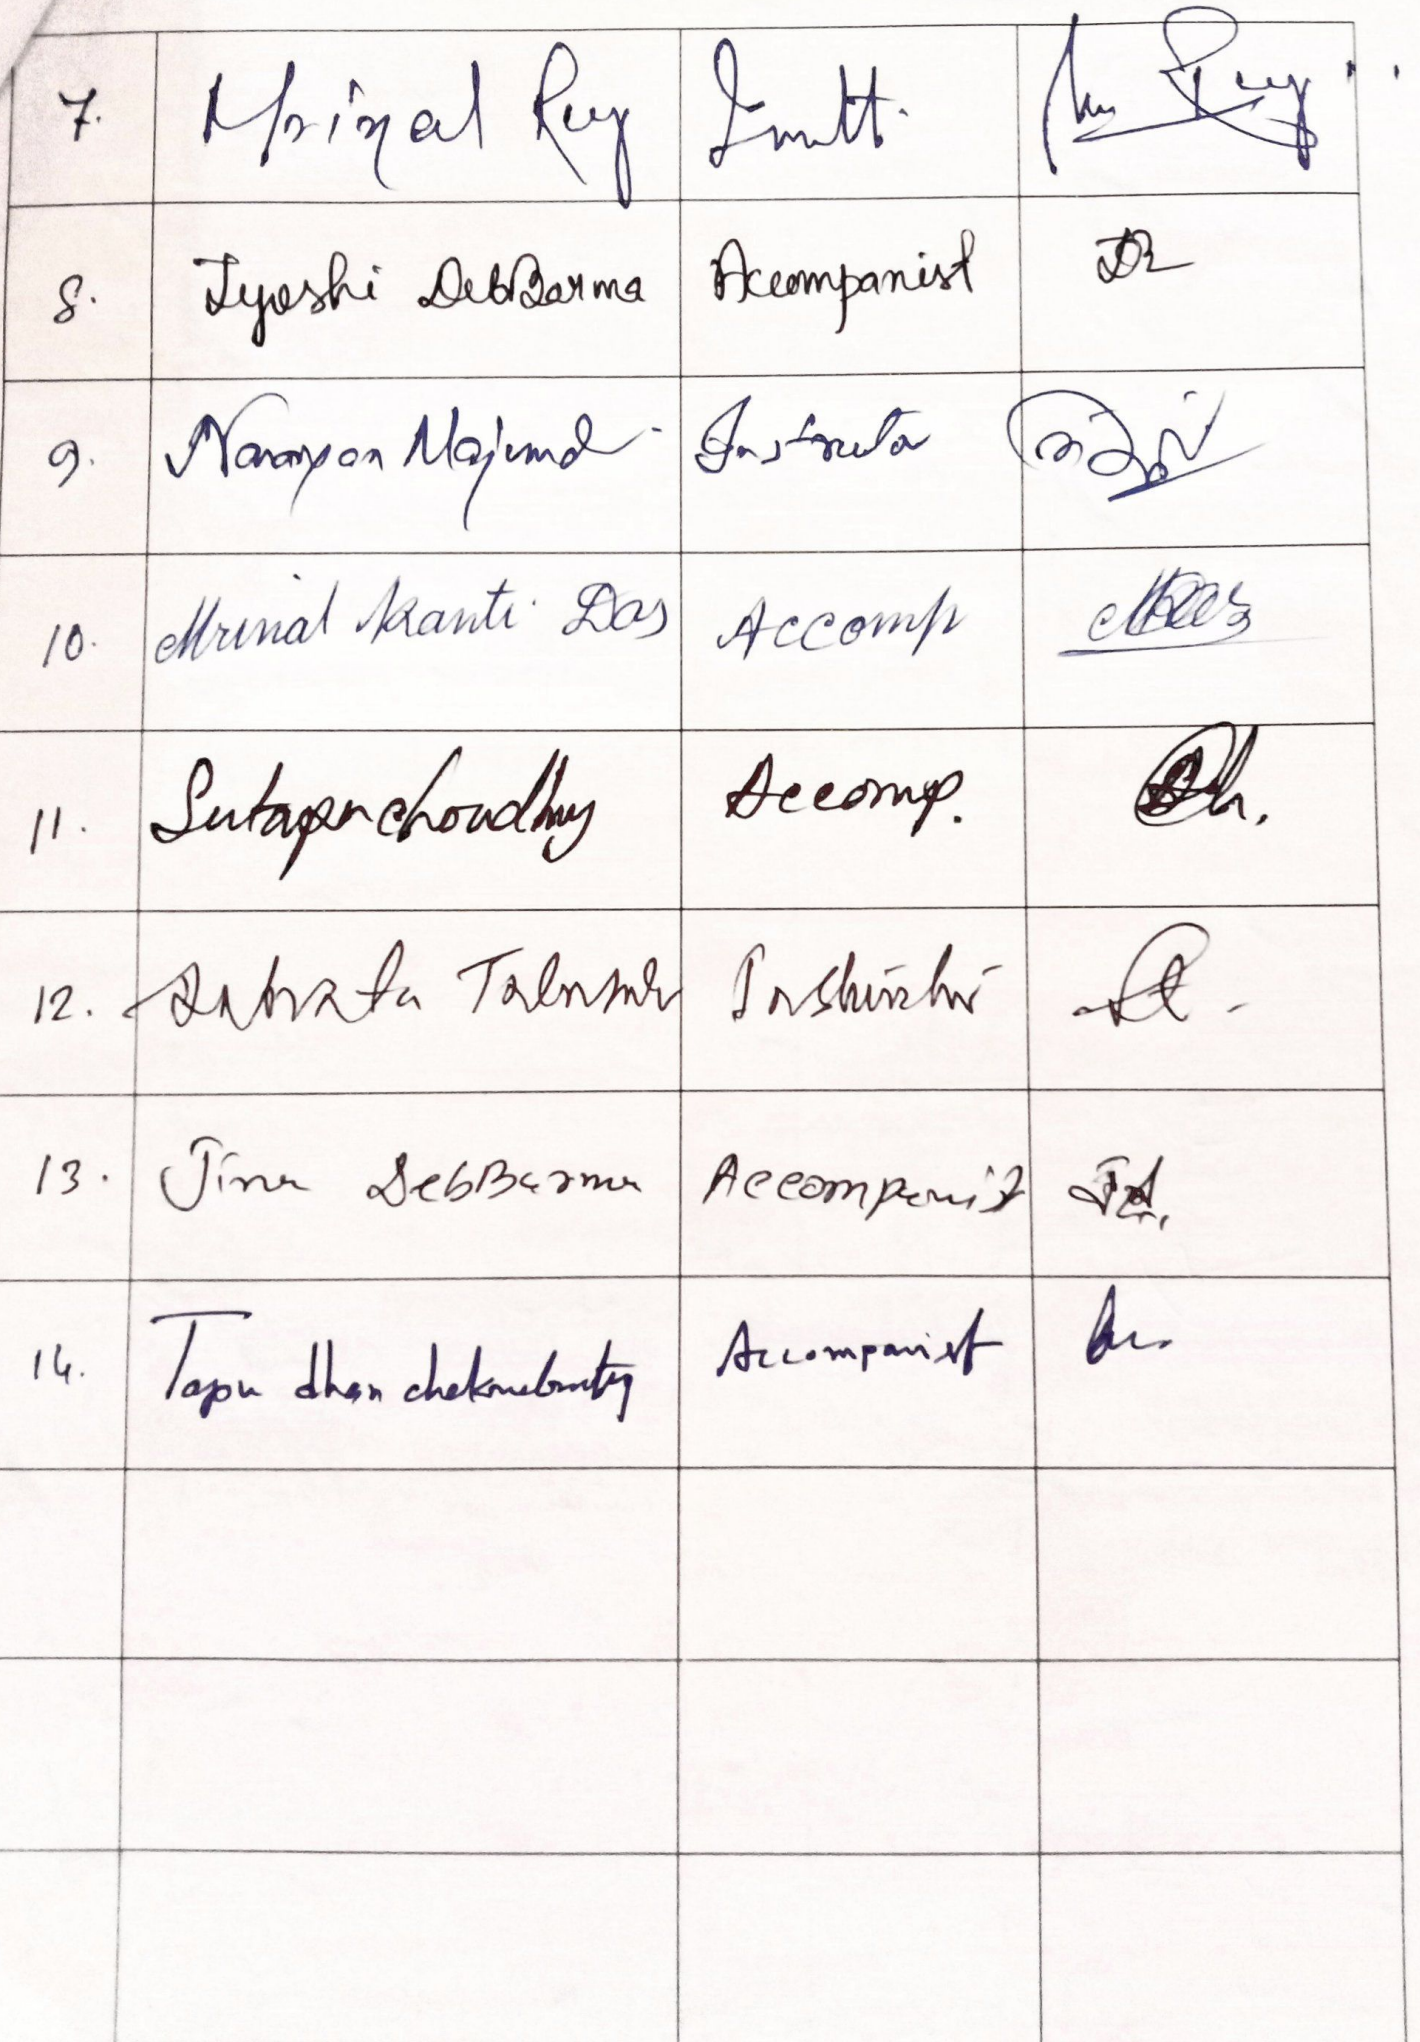 7. Mrinal Roy
8. Jyoshi DebBarma Accompanist
9. Narayan Majumd Instructor
10. Mrinal Kanti Das Accomp
11. Sutapa choudhury Accomp.
12. Subrata Talukdar Instructor
13. Jina DebBarma Accompanist
14. Tapu dhan chakraborty Accompanist